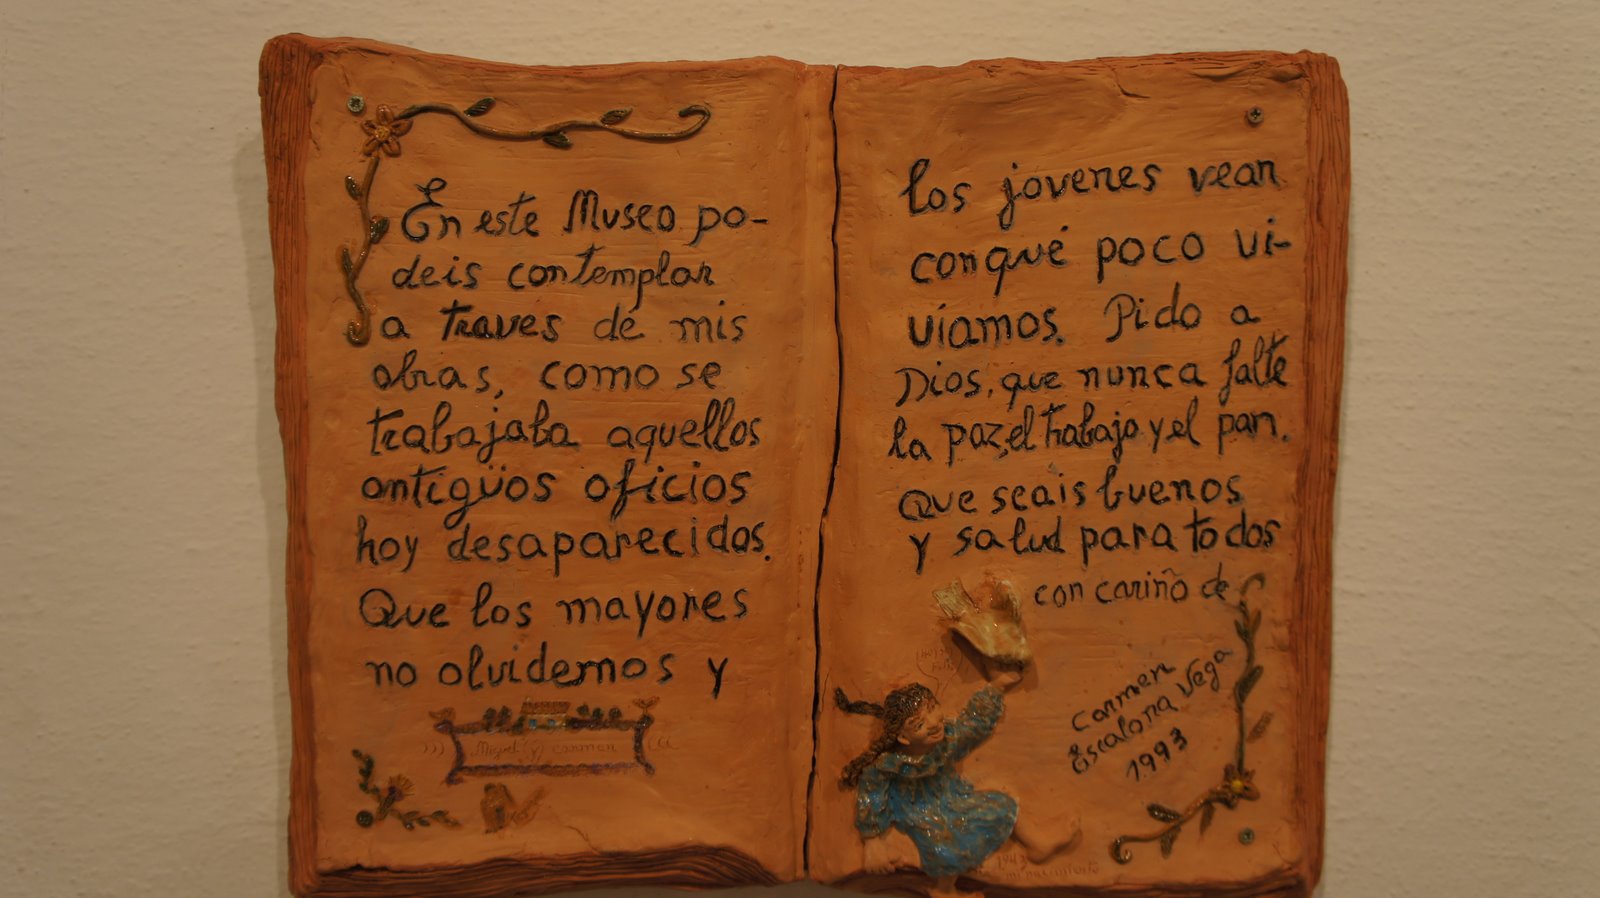 En este Museo po-
deis contemplar
a traves de mis
obras, como se
trabajaba aquellos
antigüos oficios
hoy desaparecidos.
Que los mayores
no olvidemos y
Miguel (y) carmen
los jovenes vean
conqué poco vi-
víamos. Pido a
Dios, que nunca falte
la paz, el trabajo y el pan.
Que seais buenos
y salud para todos
con cariño de
Carmen
Escalona Vega
1993
1943
mi nacimiento